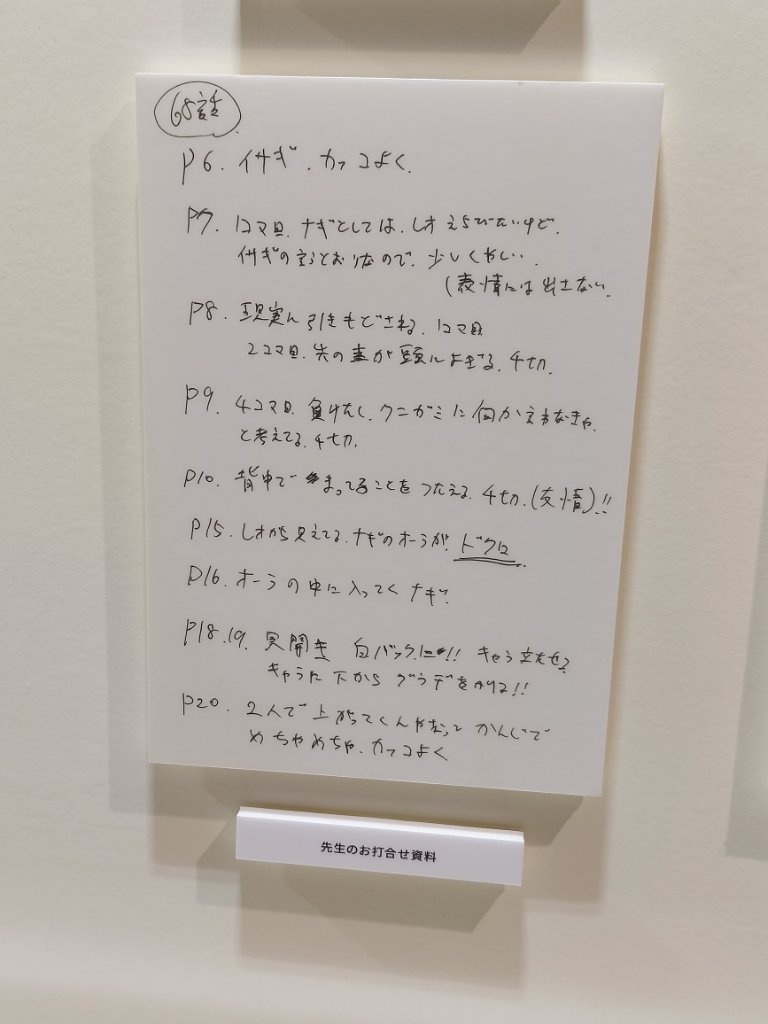 68話
P6. イサギ.カッコよく.
P7. 1コマ目.ナギとしては.レオえらびたいけど.
イサギの言うとおりなので.少しくやしい.
(表情には出さない.
P8. 現実に引きもどされる.1コマ目
2コマ目.先の事が頭によぎる.千切.
P9. 4コマ目.負けたし.クニガミに向かえなきゃ.
と考えてる.千切.
P10. 背中でまってることをつたえる.千切.(友情)!!
P15. レオから見えてる.ナギのオーラが.ドクロ
P16. オーラの中に入ってくナギ.
P18.19. 見開き 白バックに!! キャラ立たせ
キャラに下からグラデをかける!!
P20. 2人で上がってくんやなってかんじで
めちゃめちゃ.カッコよく
先生のお打合せ資料